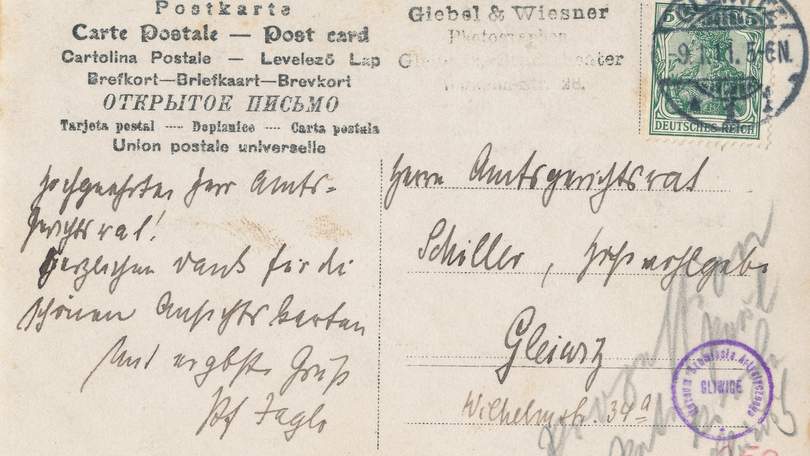 Postkarte
Carte Postale — Post card
Cartolina Postale — Levelező Lap
Brefkort—Briefkaart—Brevkort
ОТКРЫТОЕ ПИСЬМО
Tarjeta postal — Dopisnice — Carta postala
Union postale universelle
Giebel & Wiesner
Photographen
28.
5
-9.1.11. 5-6N.
DEUTSCHES REICH
Hochgeehrter Herr Amts-
gerichtsrat!
Herzlichen Dank für die
schönen Ansichtskarten
und ergbste Grüße
Herrn Amtsgerichtsrat
Schiller, Hochwohlgeb
Gleiwitz
Wilhelmstr. 34a
GLIWICE